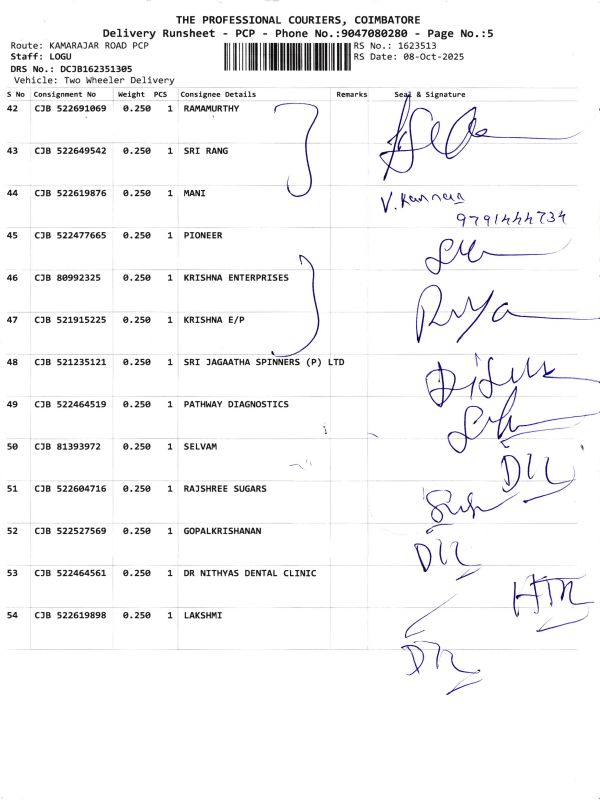 THE PROFESSIONAL COURIERS, COIMBATORE
Delivery Runsheet - PCP - Phone No.:9047080280 - Page No.:5
Route: KAMARAJAR ROAD PCP RS No.: 1623513
Staff: LOGU RS Date: 08-Oct-2025
DRS No.: DCJB162351305
Vehicle: Two Wheeler Delivery
S No Consignment No Weight PCS Consignee Details Remarks Seal & Signature
42 CJB 522691069 0.250 1 RAMAMURTHY
43 CJB 522649542 0.250 1 SRI RANG
44 CJB 522619876 0.250 1 MANI V. Kannan
9791444734
45 CJB 522477665 0.250 1 PIONEER
46 CJB 80992325 0.250 1 KRISHNA ENTERPRISES
47 CJB 521915225 0.250 1 KRISHNA E/P
48 CJB 521235121 0.250 1 SRI JAGAATHA SPINNERS (P) LTD
49 CJB 522464519 0.250 1 PATHWAY DIAGNOSTICS
50 CJB 81393972 0.250 1 SELVAM
51 CJB 522604716 0.250 1 RAJSHREE SUGARS
52 CJB 522527569 0.250 1 GOPALKRISHANAN
53 CJB 522464561 0.250 1 DR NITHYAS DENTAL CLINIC
54 CJB 522619898 0.250 1 LAKSHMI